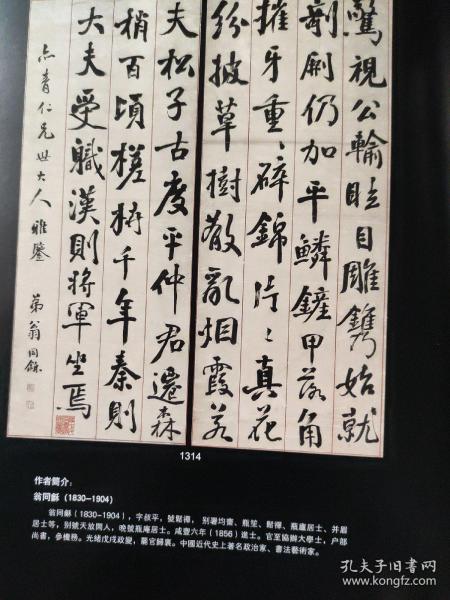 驚視公輸眩目雕鐫始就
剞劂仍加平鱗鏟甲落角
摧牙重〻碎錦片〻真花
紛披草樹散亂烟霞若
夫松子古度平仲君遷森
梢百頃槎枿千年秦則
大夫受職漢則將軍坐焉
青仁兄世大人雅鑒 弟翁同龢
1314
作者簡介:
翁同龢(1830-1904)
翁同龢(1830-1904),字叔平,號鬆禪,別署均齋、瓶笙、鬆禪、瓶廬居士、并眉
居士等,別號天放閑人,晚號瓶庵居士。咸豐六年(1856)進士。官至協辦大學士,户部
尚書,參機務。光緒戊戌政變,罷官歸裏。中國近代史上著名政治家、書法藝術家。
孔夫子旧书网